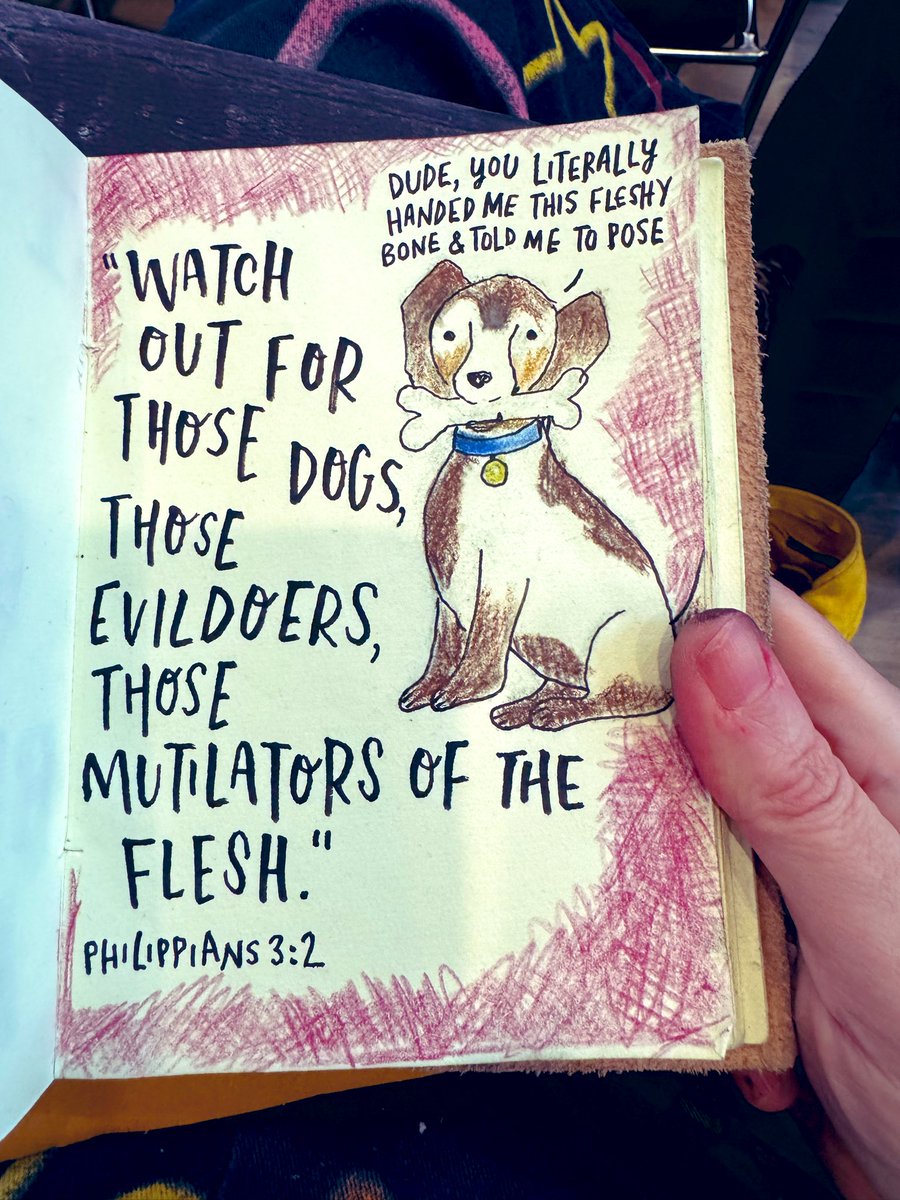 DUDE, YOU LITERALLY
HANDED ME THIS FLESHY
BONE & TOLD ME TO POSE
"WATCH
OUT FOR
THOSE DOGS,
THOSE
EVILDOERS,
THOSE
MUTILATORS OF THE
FLESH."
PHILIPPIANS 3:2